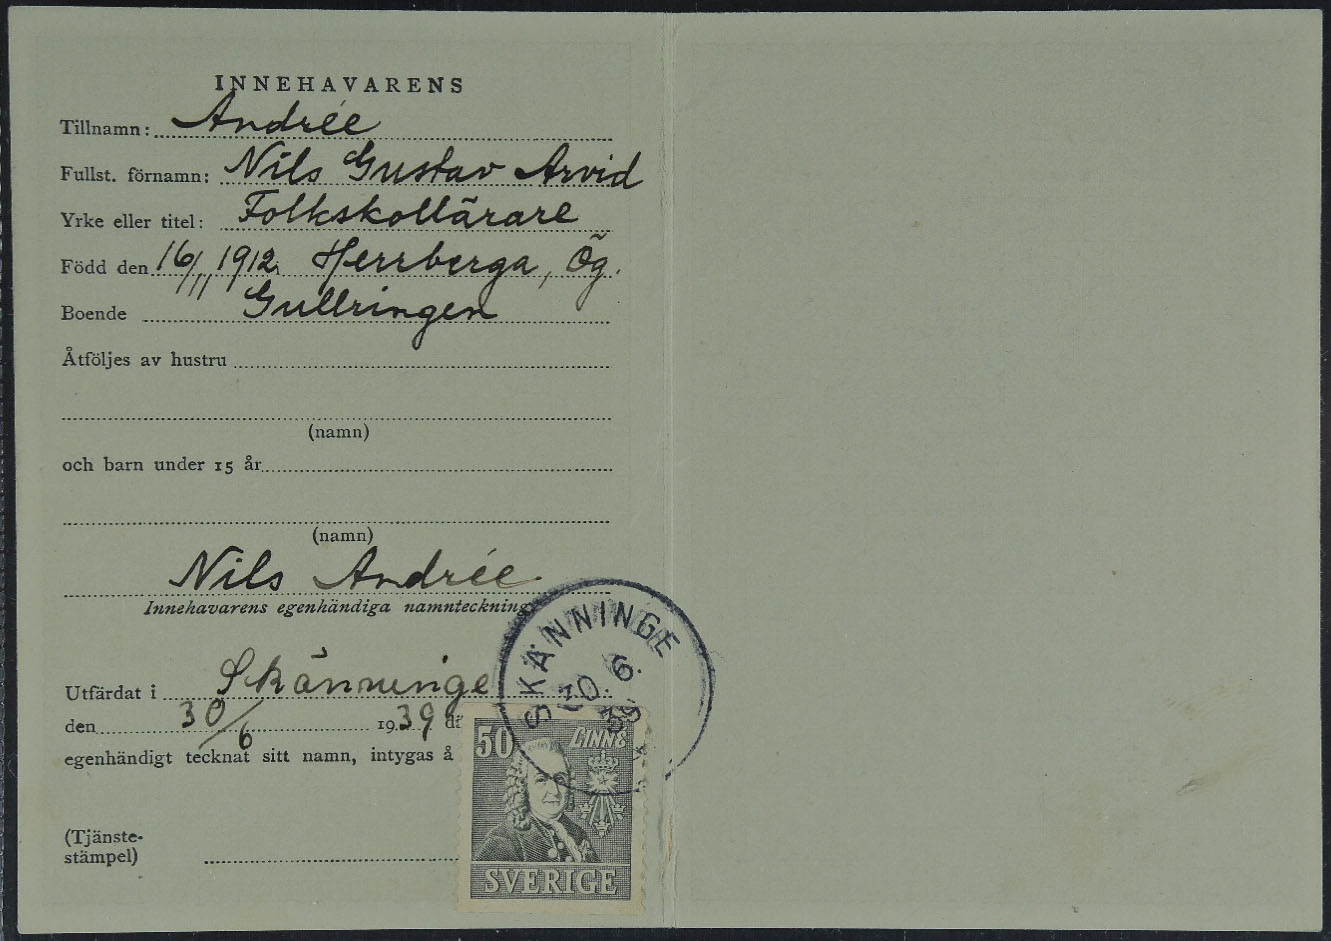 INNEHAVARENS
Tillnamn: Andrée
Fullst. förnamn: Nils Gustav Arvid
Yrke eller titel: Folkskollärare
Född den 16/11 1912. Herrberga, Ög.
Boende Gullringen
Åtföljes av hustru
(namn)
och barn under 15 år
(namn)
Nils Andrée
Innehavarens egenhändiga namnteckning
Utfärdat i Skänninge
den 30/6 1939 dä
egenhändigt tecknat sitt namn, intygas å
(Tjänste-
stämpel)
SKÄNNINGE
30. 6.
50 LINNÉ
SVERIGE